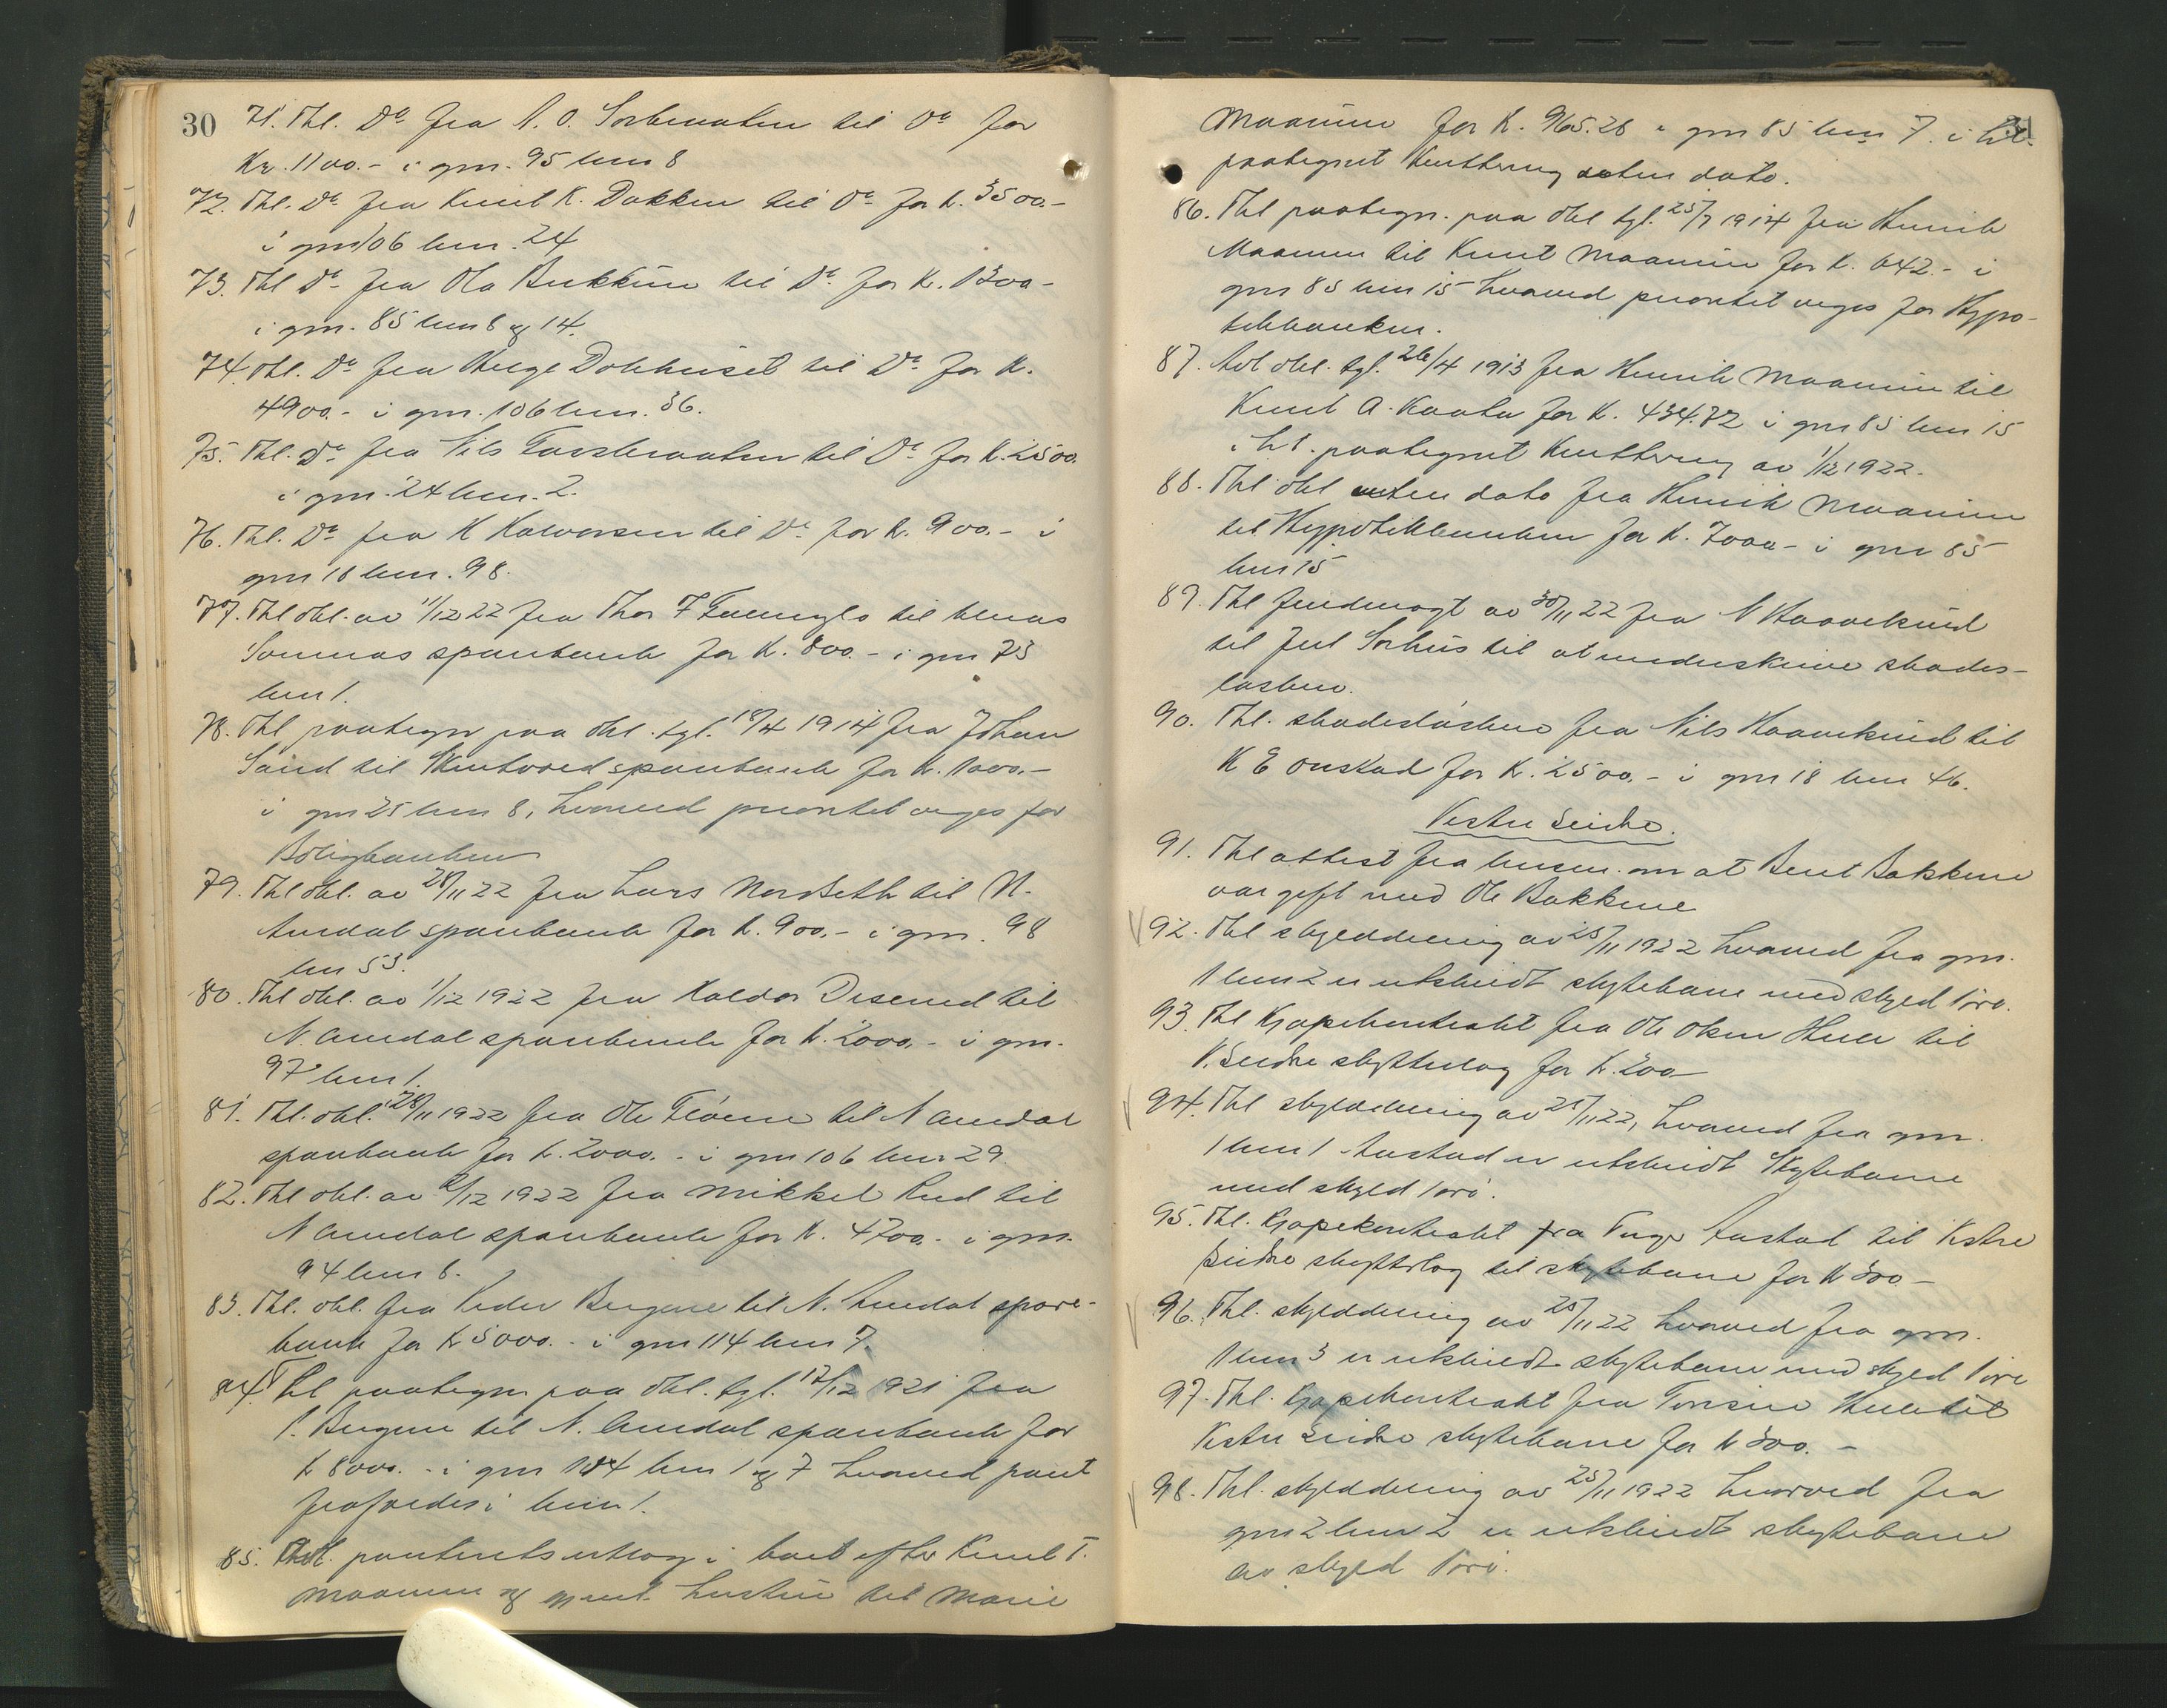 30
71. Thl. Do fra N. O. Sorbraaten til Do for
Kr. 1100.- i gnr. 95 bnr 8
72. Thl. Do fra Knut K. Dokken til Do for K. 3500.-
i gnr 106 bnr. 24
73. Thl Do fra Ola Bukkene til Do for K. 1300-
i gnr. 85 bnr 8 og 14.
74. Thl. Do fra Helge Dokhuset til Do for K.
4900.- i gnr. 106 bnr. 36.
75. Thl. Do fra Nils til Do for K. 2500.
i gnr. 24 bnr. 2.
76. Thl. Do fra K Halvorsen til Do for K. 900.- i
gnr 18 bnr. 98.
77. Thl obl. av 1/12 22 fra Thor T til
sparebank for K. 800.- i gnr 73
bnr 1.
78. Thl paategn paa obl. tgl. 19/4 1914 fra Johan
Sand til sparebank for K. 1000.-
i gnr 25 bnr 8, hvorved prioritet viges for
Boligbanken
79. Thl obl. av 28/11 22 fra Lars Nordseth til N.
Aurdal sparebank for K. 900.- i gnr. 98
bnr 53.
80. Thl obl. av 1/12 1922 fra Haldor Diserud til
N. Aurdal sparebank for K. 2000.- i gnr.
97 bnr 1.
81. Thl. obl. 28/11 1922 fra Ole til N Aurdal
sparebank for K. 2000.- i gnr 106 bnr 29.
82. Thl obl. av 2/12 1922 fra Mikkel Rud til
N Aurdal sparebank for K. 4700.- i gnr.
94 bnr 8.
83. Thl. obl. fra Peder Bergene til N. Aurdal spare-
bank for K 5000.- i gnr 114 bnr 7.
84. Thl paategn paa obl. tgl. 17/12 1921 fra
P. Bergene til N. Aurdal sparebank for
K 8000.- i gnr 114 bnr 1 og 7 hvorved pant
frafaldes i bnr 1.
85. Thl. panterets utlæg i boet efter Knut T.
Maanum og gjenl. hustru til Marie
31
Maanum for K. 965.28 i gnr 85 bnr 7. i h.t.
paategnet kvittering uten dato.
86. Thl paategn. paa obl tgl. 25/7 1914 fra Henrik
Maanum til Knut Maanum for K. 642.- i
gnr 85 bnr 15 hvorved prioritet viges for Hypo-
tekbanken.
87. Avl obl. tgl. 26/4 1913 fra Henrik Maanum til
Knut A. Kaata for K. 434.72 i gnr 85 bnr 15
i h.t. paategnet kvittering av 1/12 1922.
88. Thl obl uten dato fra Henrik Maanum
til Hypotekbanken for K. 7000- i gnr 85
bnr 15
89. Thl fuldmagt av 30/11 22 fra N Haavelsrud
til Jul Sorhus til at underskrive skades-
løsbrev.
90. Thl. skadesløsbrev fra Nils Haavelsrud til
K E Onstad for K. 2500.- i gnr 18 bnr 46.
Vestre Slidre.
91. Thl attest fra lensm. om at Berit Bakkene
var gift med Ole Bakkene
92. Thl skylddeling av 25/11 1922 hvorved fra gnr.
1 bnr 2 er utskildt skytebane med skyld 1 øre.
93. Thl Kjøpekontrakt fra Ole Olsen til
V. Slidre skytterlag for K. 200-
94. Thl skylddeling av 25/11 22, hvorved fra gnr.
1 bnr 1 er utskildt Skytebane
med skyld 1 øre.
95. Thl. Kjøpekontrakt fra til Vestre
Slidre skytterlag til skytebane for K 300.-
96. Thl. skylddeling av 25/11 22 hvorved fra gnr.
1 bnr 3 er utskildt skytebane med skyld 1 øre
97. Thl. kjøpekontrakt fra til
Vestre Slidre skytebane for K 300.-
98. Thl. skylddeling av 25/11 1922 hvorved fra
gnr 2 bnr 2 er utskildt skytebane
av skyld 1 øre.